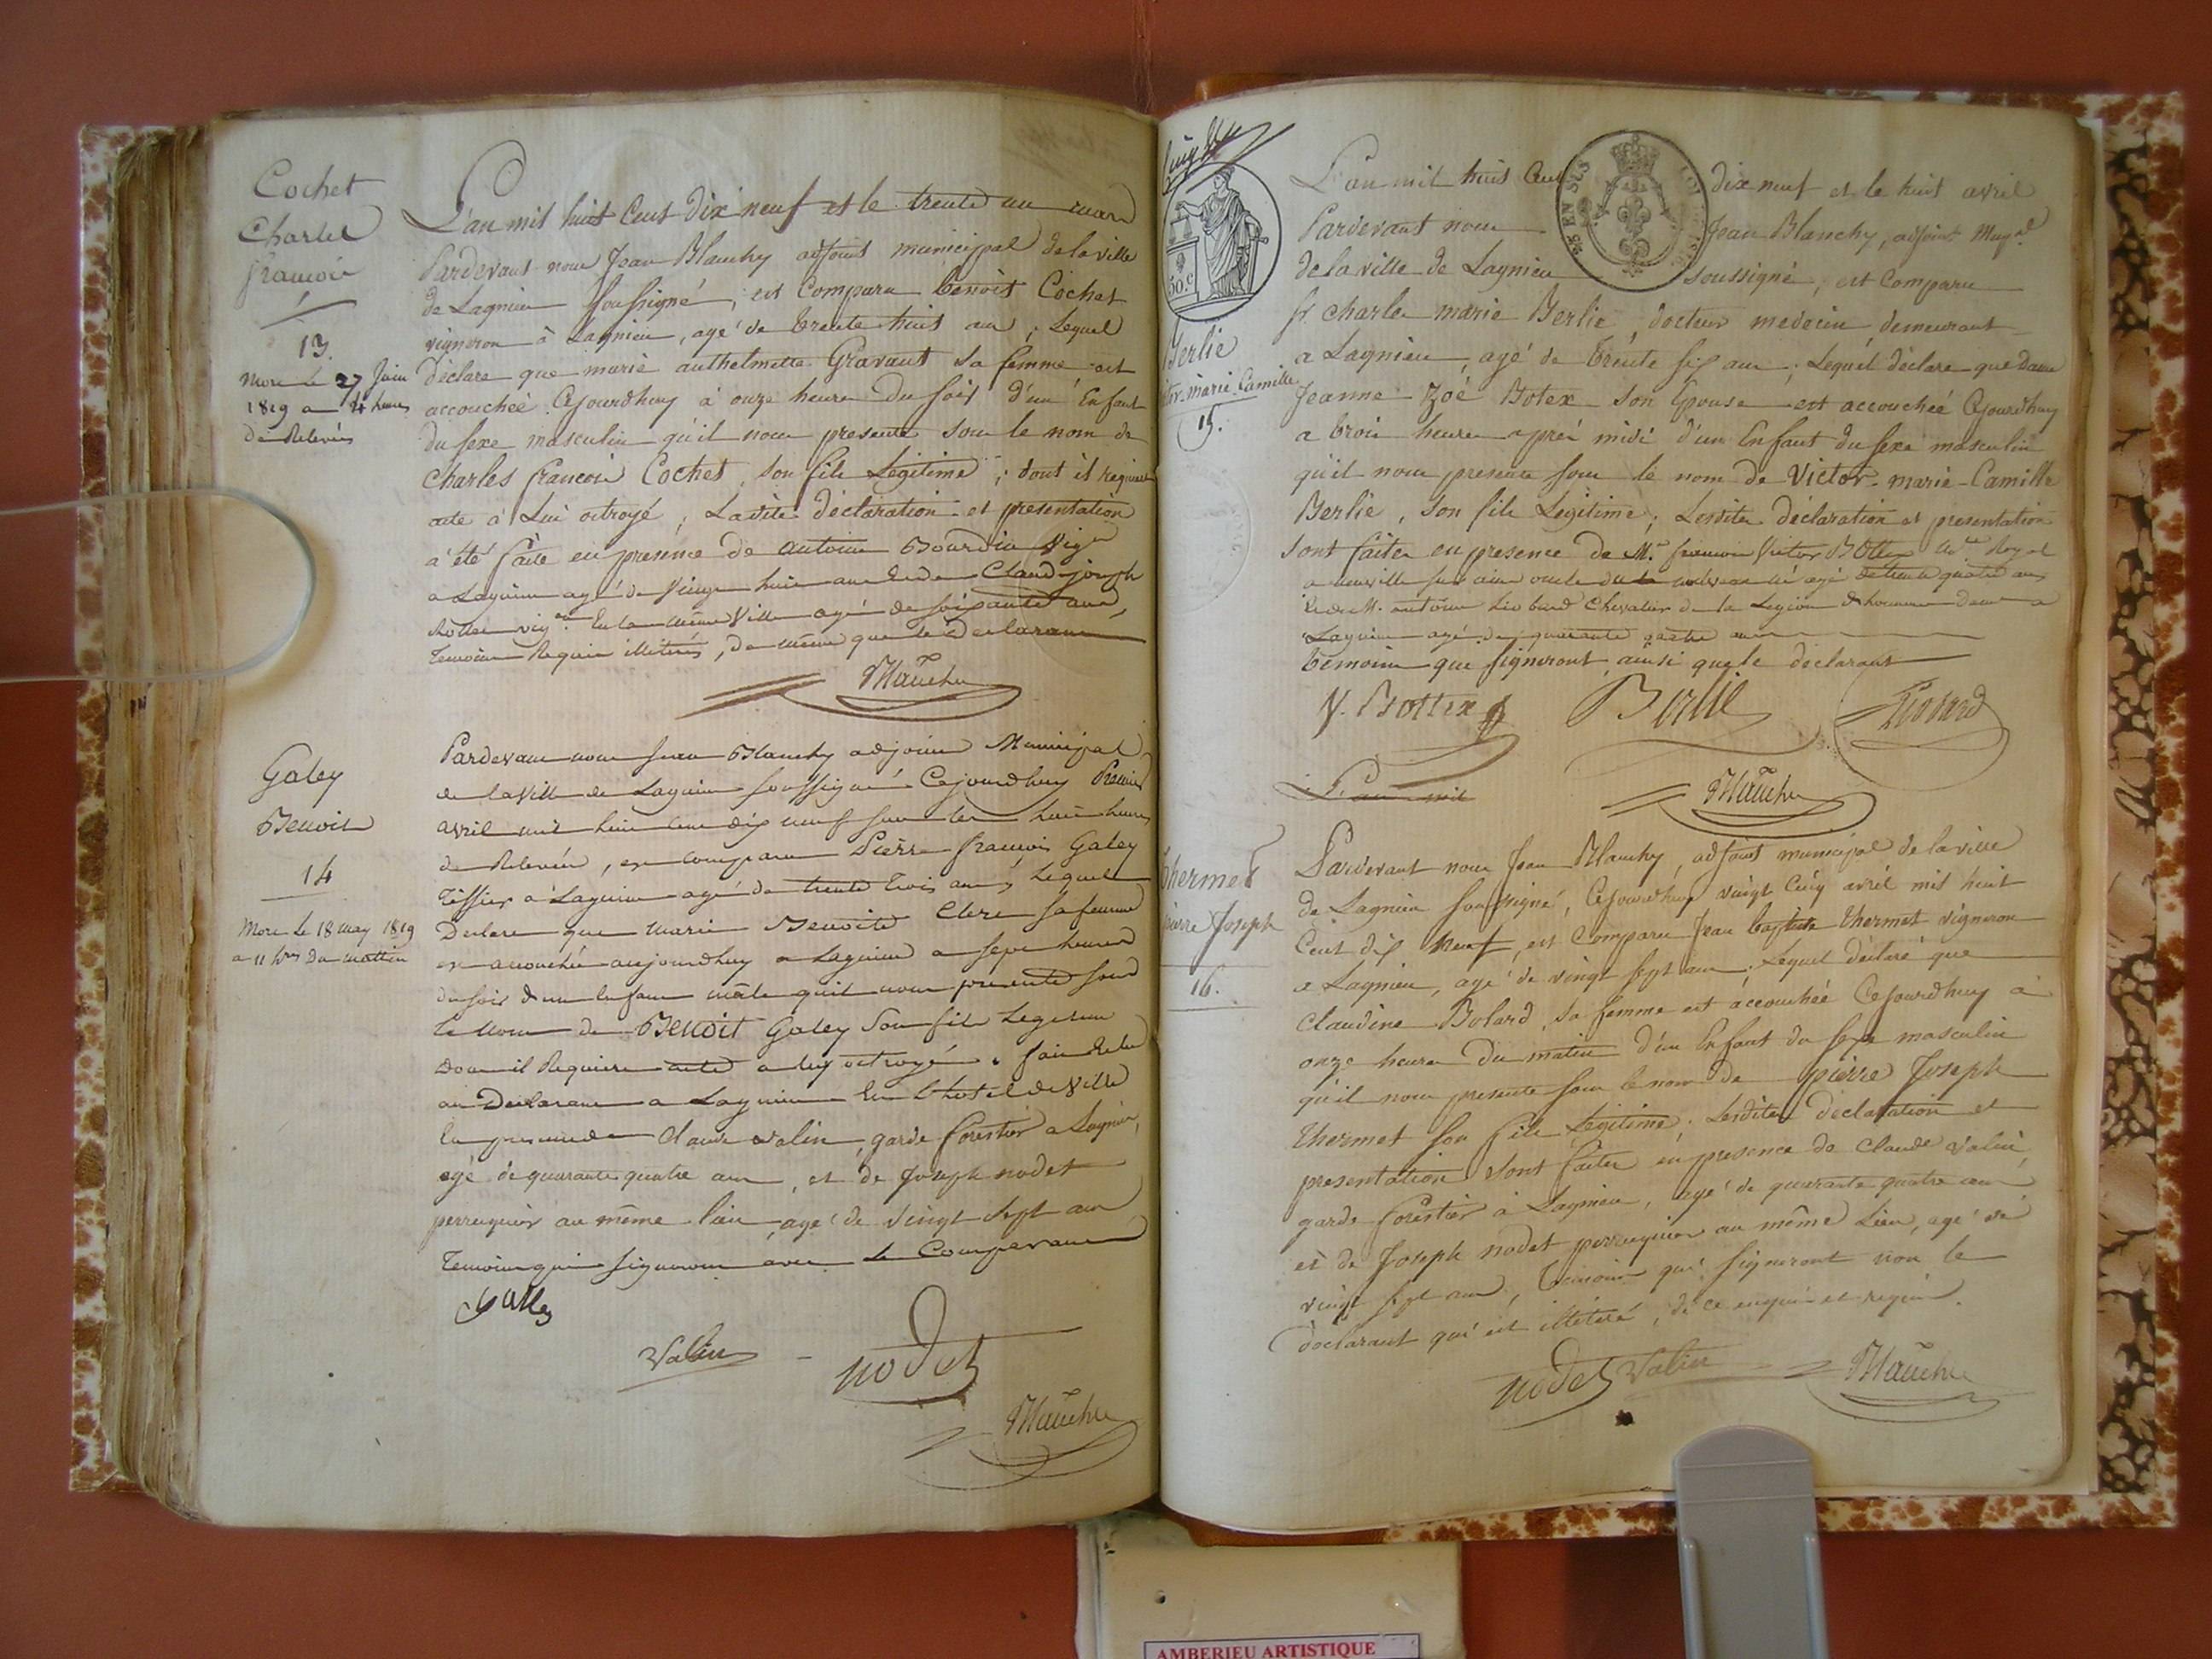 Cochet
Charles
françois
13.
Mort Le 27 Juin
1819 a 4 heures
De Relevée
L'an mil huit Cent dix neuf et le trente un mars
Pardevant nous Jean Blanchy adjoint municipal de la ville
de Lagnieu soussigné, est Comparu benoit Cochet
vigneron à Lagnieu, agé de trente huit ans; Lequel
déclare que marie anthelmette Gravant sa femme est
accouchée Cejourdhuy à onze heures du soir d'un Enfant
du sexe masculin qu'il nous presente sous le nom de
Charles françois Cochet, son fils Légitime; dont il requiert
acte à Lui octroyé; Ladite déclaration et presentation
a été faite en presence de antoine Bourdin vign
a Lagnieu agé de Vingt huit ans et de Claud joseph
en la même Ville agé de soixante ans,
temoins Requis illiterés, de même que le Declarant
Blanchy
Galey
Benoit
14
Mort Le 18 may 1819
a 11 hres Du mattin
Pardevant nous Jean Blanchy adjoint Municipal
de la Ville de Lagnieu soussigné Cejourdhuy Premier
avril mil huit cent dix neuf sur les huit heures
de Relevée, est comparu Pierre francois Galey
Tissier a Lagnieu agé de trente trois ans, Lequel
Declare que marie Benoite Clerc sa femme
est accouchée aujourdhuy a Lagnieu a sept heures
du soir d'un Enfant mâle qu'il nous presente sous
Le Nom de Benoit Galey Son fils Legitime
Dont il Requiere acte a luy octroyé. fait et lu
au Declarant a Lagnieu En L'hotel de Ville
En presence de Claude valin, garde forestier a Lagnieu,
agé de quarante quatre ans, et de Joseph nodet
perruquier au même lieu, agé de vingt sept ans
Temoins qui signeront avec le Comparant
Galley
Valin
nodet
Blanchy
50.c
Berlie
victor-marie-Camille
15.
L'an mil huit Cent dix neuf et le huit avril
Pardevant nous Jean Blanchy, adjoint Mupal
de la ville de Lagnieu soussigné, est Comparu
sr charles marie Berlie, docteur medecin demeurant
a Lagnieu, agé de trente six ans; Lequel déclare que dame
Jeanne Zoé Botex son Epouse est accouchée Cejourdhuy
a trois heures aprés midi d'un Enfant du sexe masculin
qu'il nous presente sous le nom de Victor-marie-Camille
Berlie, son fils Légitime; Lesdites déclaration et presentation
sont faites en presence de Mr francois Victor Bottex Royal
a neuville sur ain oncle du nouveau né agé de trente quatre ans
et de M. antoine Chevalier de la Legion d'honneur a
Lagnieu agé de quarante quatre ans
temoins que signeront ainsi que le declarant
V. Bottex
Berlie
Blanchy
L'an mil
Thermet
pierre Joseph
16.
Pardevant nous Jean Blanchy, adjoint municipal de la ville
de Lagnieu soussigné, Cejourdhuy vingt Cinq avril mil huit
Cent dix Neuf, est Comparu Jean baptiste thermet vigneron
a Lagnieu, agé de vingt sept ans. Lequel déclare que
Claudine Bolard, sa femme est accouchée Cejourdhuy à
onze heures du matin d'un Enfant du sexe masculin
qu'il nous presente sous le nom de pierre Joseph
thermet son fils Légitime; Lesdites declaration et
presentation sont faites en presence de Claude valin,
garde forestier à Lagnieu, agé de quarante quatre ans
et de Joseph nodet perruquier au même Lieu, agé de
vingt sept ans, temoins qui signeront non le
declarant qui est illiteré, de ce enquis et requis.
nodet
Valin
Blanchy
AMBERIEU ARTISTIQUE